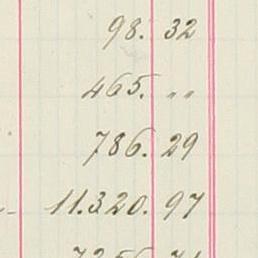 98. 32
465. "
786. 29
11.320. 97